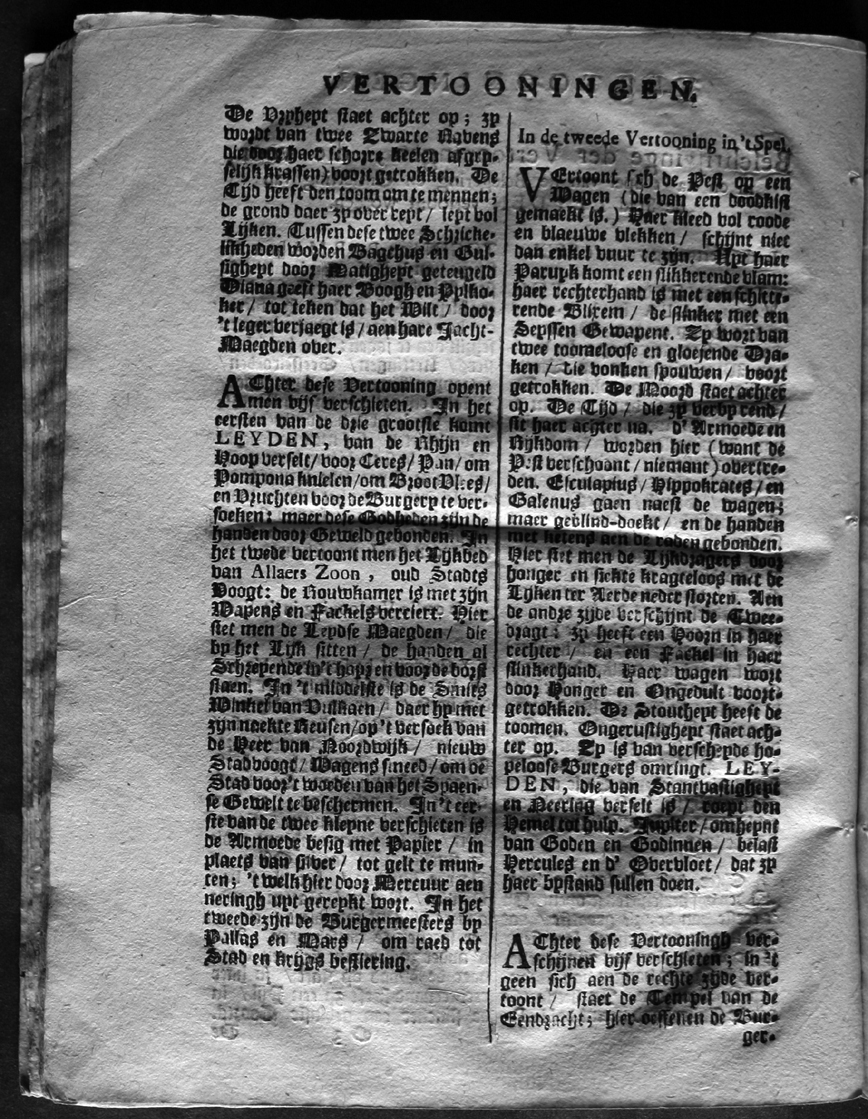 VERTOONINGEN.
De Vryheyt staet achter op; zy
wordt van twee Zwarte Ravens
die door haer schorre keelen afgry-
selijk krassen) voort getrokken. De
Tijd heeft den toom om te mennen;
de grond daer zy over rept / lept vol
Lijken. Tussen dese twee Schricke-
likheden worden Bacchus en Gul-
sigheyt door Matigheyt geteugeld
Diana geeft haer Boogh en Pylko-
ker / tot teken dat het Wilt / door
't leger verjaegt is / aen hare Jacht-
Maegden over.
AChter dese Vertooning opent
men vijf verschieten. In het
eersten van de drie grootste komt
LEYDEN, van de Rhijn en
Hoop verselt / voor Ceres / Pan / om
Pompona knielen / om Broot Vlees /
en Vruchten voor de Burgery te ver-
soeken; maer dese Godheden zijn de
handen door Geweld gebonden. In
het twede vertoont men het Lijkbed
van Allaers Zoon, oud Stadts
Voogt: de Rouwkamer is met zijn
Wapens en Fackels verciert. Hier
siet men de Leydse Maegden / die
by het Lijk sitten / de handen al
Schrepende in't hayr en voor de borst
slaen. In 't middelste is de Smits
Winkel van Vulkaen / daer hy met
zijn naekte Reusen / op 't versoek van
de Heer van Noordwijk / nieuw
Stadvoogt / Wagens smeed / om de
Stad voor't woeden van het Spaen-
se Gewelt te beschermen. In't eer-
ste van de twee kleyne verschieten is
de Armoede besig met Papier / in
plaets van silver / tot gelt te mun-
ten; 't welk hier door Mercuur aen
neringh uyt gereykt wort. In het
tweede zijn de Burgermeesters by
Pallas en Mars / om raed tot
Stad en krijgs bestiering.
In de tweede Vertooning in 't Spel,
VErtoont sich de Pest op een
Wagen (die van een doodkist
gemaekt is.) Haer kleed vol roode
en blaeuwe vlekken / schijnt niet
dan enkel vuur te zijn. Uyt haer
Paruyk komt een slikkerende vlam:
haer rechterhand is met een schitte-
rende Blixem / de slinker met een
Seyssen Gewapent. Zy wort van
twee toomeloose en gloejende Dra-
ken / die vonken spouwen / voort
getrokken. De Moord staet achter
op. De Tijd / die zy verby rend /
sit haer achter na. d' Armoede en
Rijkdom / worden hier (want de
Pest verschoont / niemant) overtre-
den. Esculapius / Hippokrates / en
Galenus gaen naest de wagen;
maer geblind-doekt / en de handen
met ketens aen de raden gebonden.
Hier siet men de Lijkdragers door
honger en siekte kragteloos met de
Lijken ter Aerde neder storten. Aen
de andre zijde verschijnt de Twee-
dragt: zy heeft een Hoorn in haer
rechter / en een Fackel in haer
slinkerhand. Haer wagen wort
door Honger en Ongedult voort-
getrokken. De Stoutheyt heeft de
toomen. Ongerustigheyt staet ach-
ter op. Zy is van verscheyde ho-
peloose Burgers omringt. LEY-
DEN, die van Stantvastigheyt
en Neering verselt is / roept den
Hemel tot hulp. Jupiter / omheynt
van Goden en Godinnen / belast
Hercules en d' Overvloet / dat zy
haer bystand sullen doen.
AChter dese Vertooningh ver-
schijnen vijf verschieten; in 't
geen sich aen de rechte zyde ver-
toont / staet de Tempel van de
Eendracht; hier oeffenen de Bur-
ger-